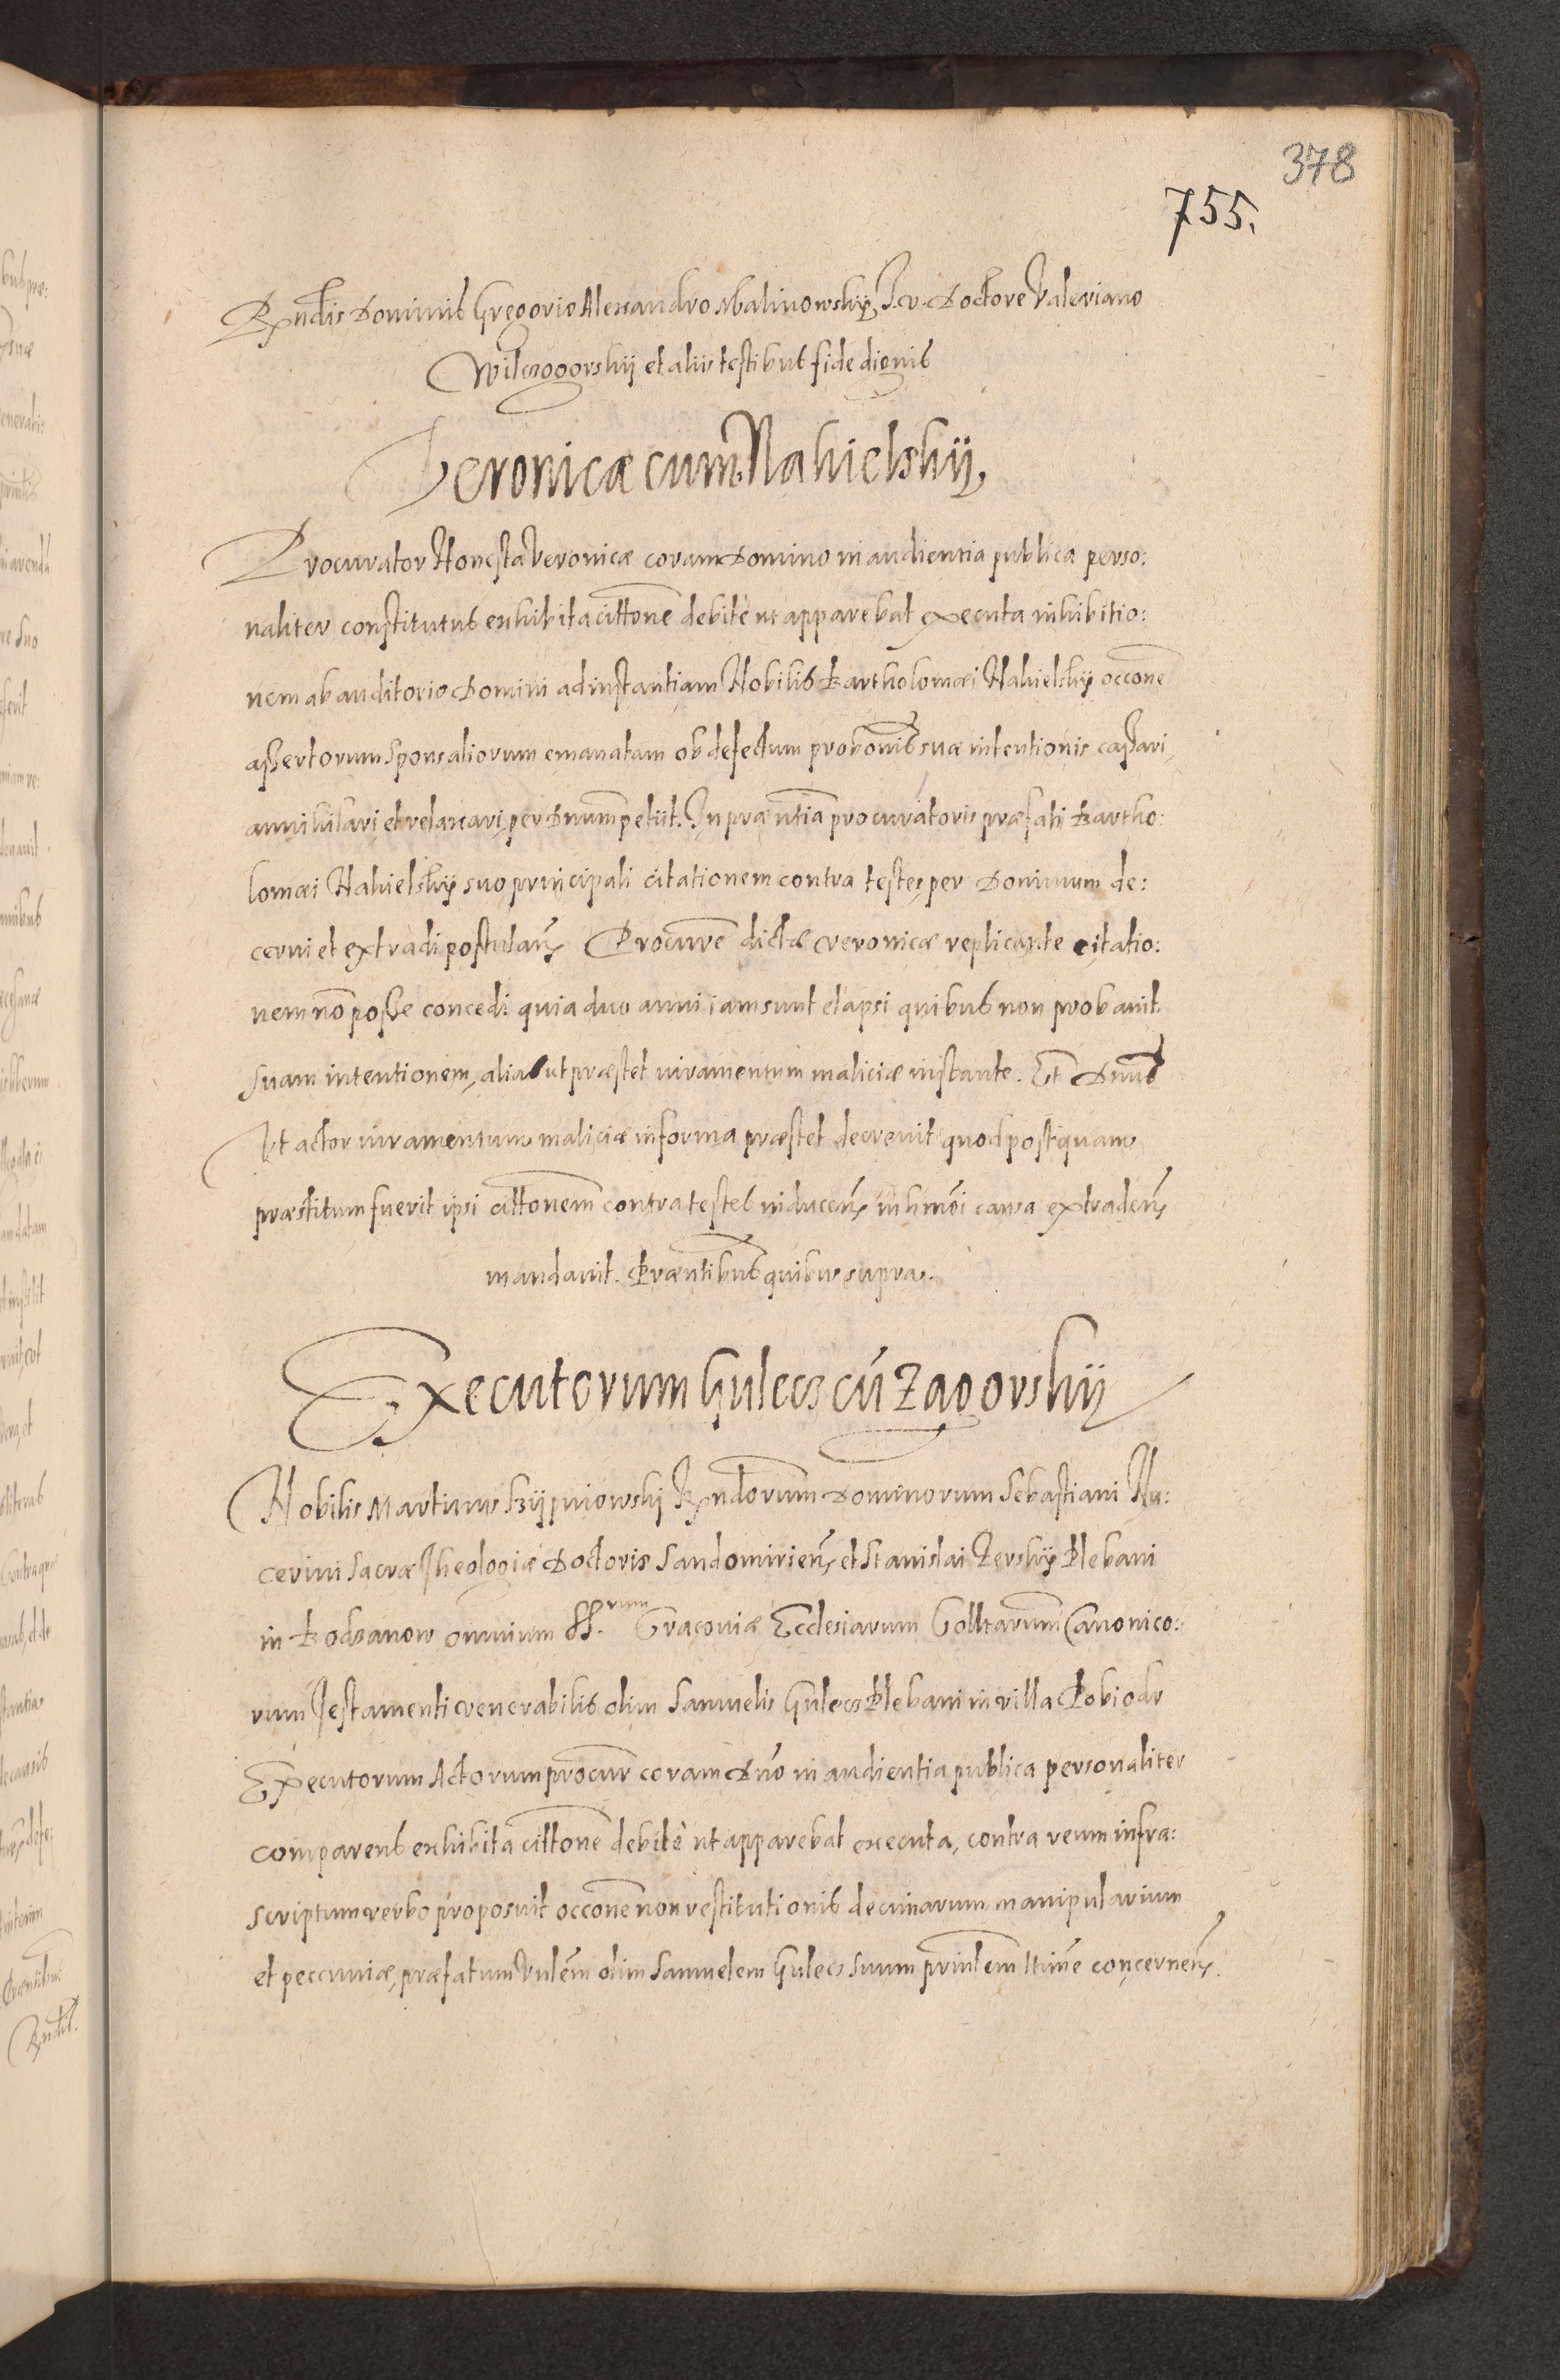 378
755.
Rndis Dominis Gregorio Alexandro Malinowskÿ J. v. Doctore Valeriano
Wilczogorskij et aliis testibus fide dignis
Veronicæ cum Nakielskij,
Procurator Honesta Veronicæ coram Domino in audientia publica perso:
naliter constitutus exhibita cittone debite ut apparebat executa inhibitio:
nem ab auditorio Domini ad instantiam Nobilis Bartholomæi Nakielskÿ occone
assertorum sponsaliorum emanatam ob defectum probonis suæ intentionis cassari
annihilari et relaxari per Dnum petiit. In præntia procuratoris præfati Bartho:
lomæi Nakielskÿ suo principali citationem contra testes per Dominum de:
cerni et extradi postulan Procure dictæ Veronicæ replicante citatio:
nem no posse concedi quia duo anni iam sunt elapsi quibus non probavit
suam intentionem, alias ut præstet iuramentum maliciæ instante. Et Dnus
Ut actor iuramentum maliciæ in forma præstet decrevit quod postquam
præstitum fuerit ipsi cittonem contra testes inducen in hmoi causa extraden
mandavit. Præntibus quibus supra.
Executorum Gulecz cu Zagorskij
Nobilis Martinus Rndorum Dominorum Sebastiani Nu:
cerini Sacræ Theologiæ Doctoris Sandomirien et Stanislai Zerskÿ Plebani
in Bodzanow omnium SS.rum Cracoviæ Ecclesiarum Colltarum Canonico:
rum Testamenti venerabilis olim Samuelis Gulecz Plebani in villa Pobiodr
Executorum Actorum procur coram Dno in audientia publica personaliter
comparens exhibita cittone debite ut apparebat executa, contra reum infra:
scriptum verbo proposuit occone non restitutionis decimarum manipularium
et pecuniæ, præfatum Vnlem olim Samuelem Gulecz suum prinlem ltime concernen.